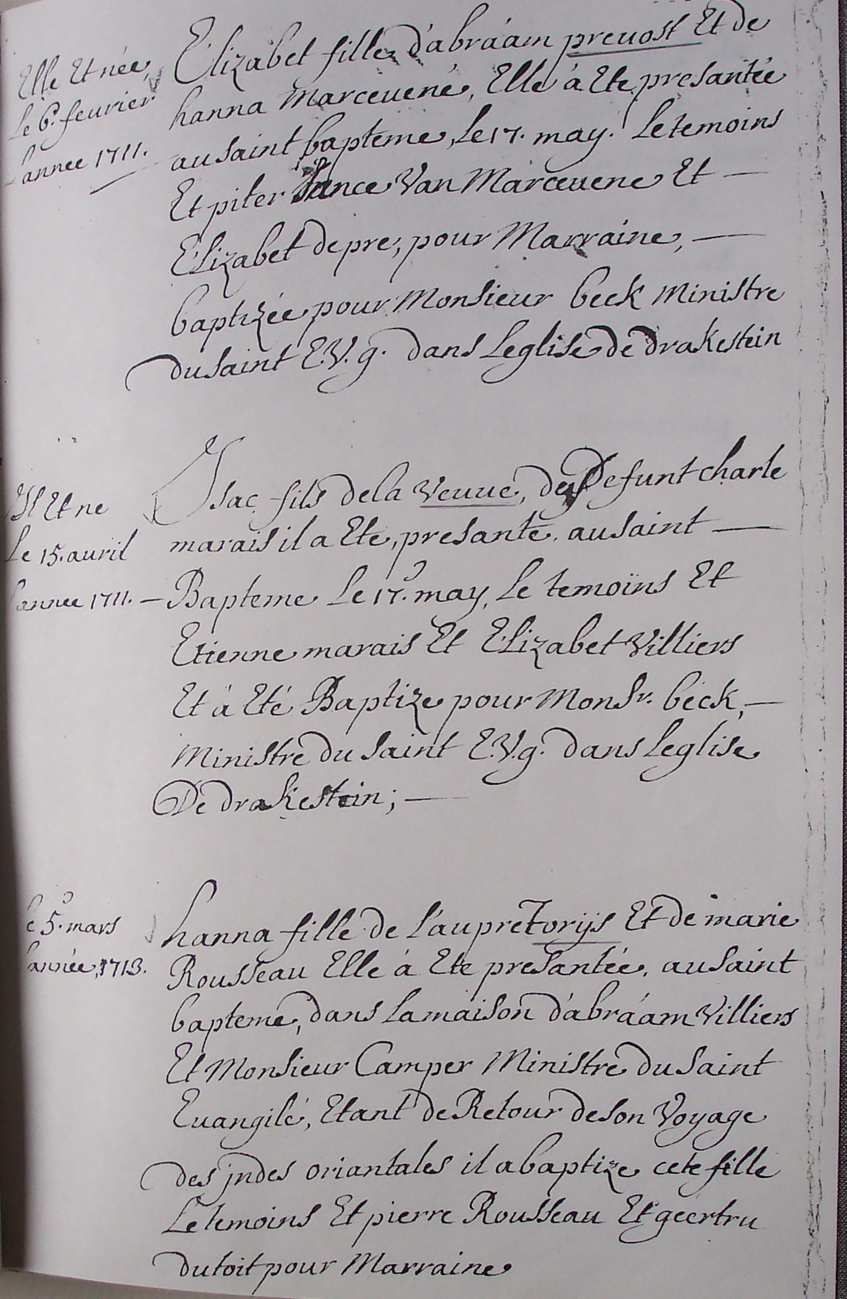 Elle Et née,
Le 6e. feurier
Lannee 1711.
Elizabet fille d'abráam preuost Et de
hanna Marceuené, Elle á Ete presantée
au saint bapteme, Le 17. may. Le temoins
Et piter Van Marceuene Et —
Elizabet depre, pour Marraine, —
baptizée pour Monsieur beck Ministre
du Saint E.V.g. dans Leglise de drakestein
Il Et ne
Le 15. auril
Lannee 1711. —
Isac fils de la Veuue, de Defunt charle
marais il a Ete, presante, au saint —
Bapteme Le 17. may, Le temoins Et
Etienne marais Et Elizabet Villiers
Et á Eté Baptize pour Monsr. beck, —
Ministre du Saint E.V.g. dans Leglise
De drakestein; —
Le 5. mars
Lannée, 1713.
hanna fille de L'aupre Torijs Et de marie
Rousseau Elle á Ete presantée, au saint
bapteme, dans La maison d'abráam Villiers
Et Monsieur Camper Ministre du Saint
Euangilé, Etant de Retour de son Voyage
des jndes oriantales il a baptize cete fille
Le temoins Et pierre Rousseau Et geertru
du toit pour Marraine